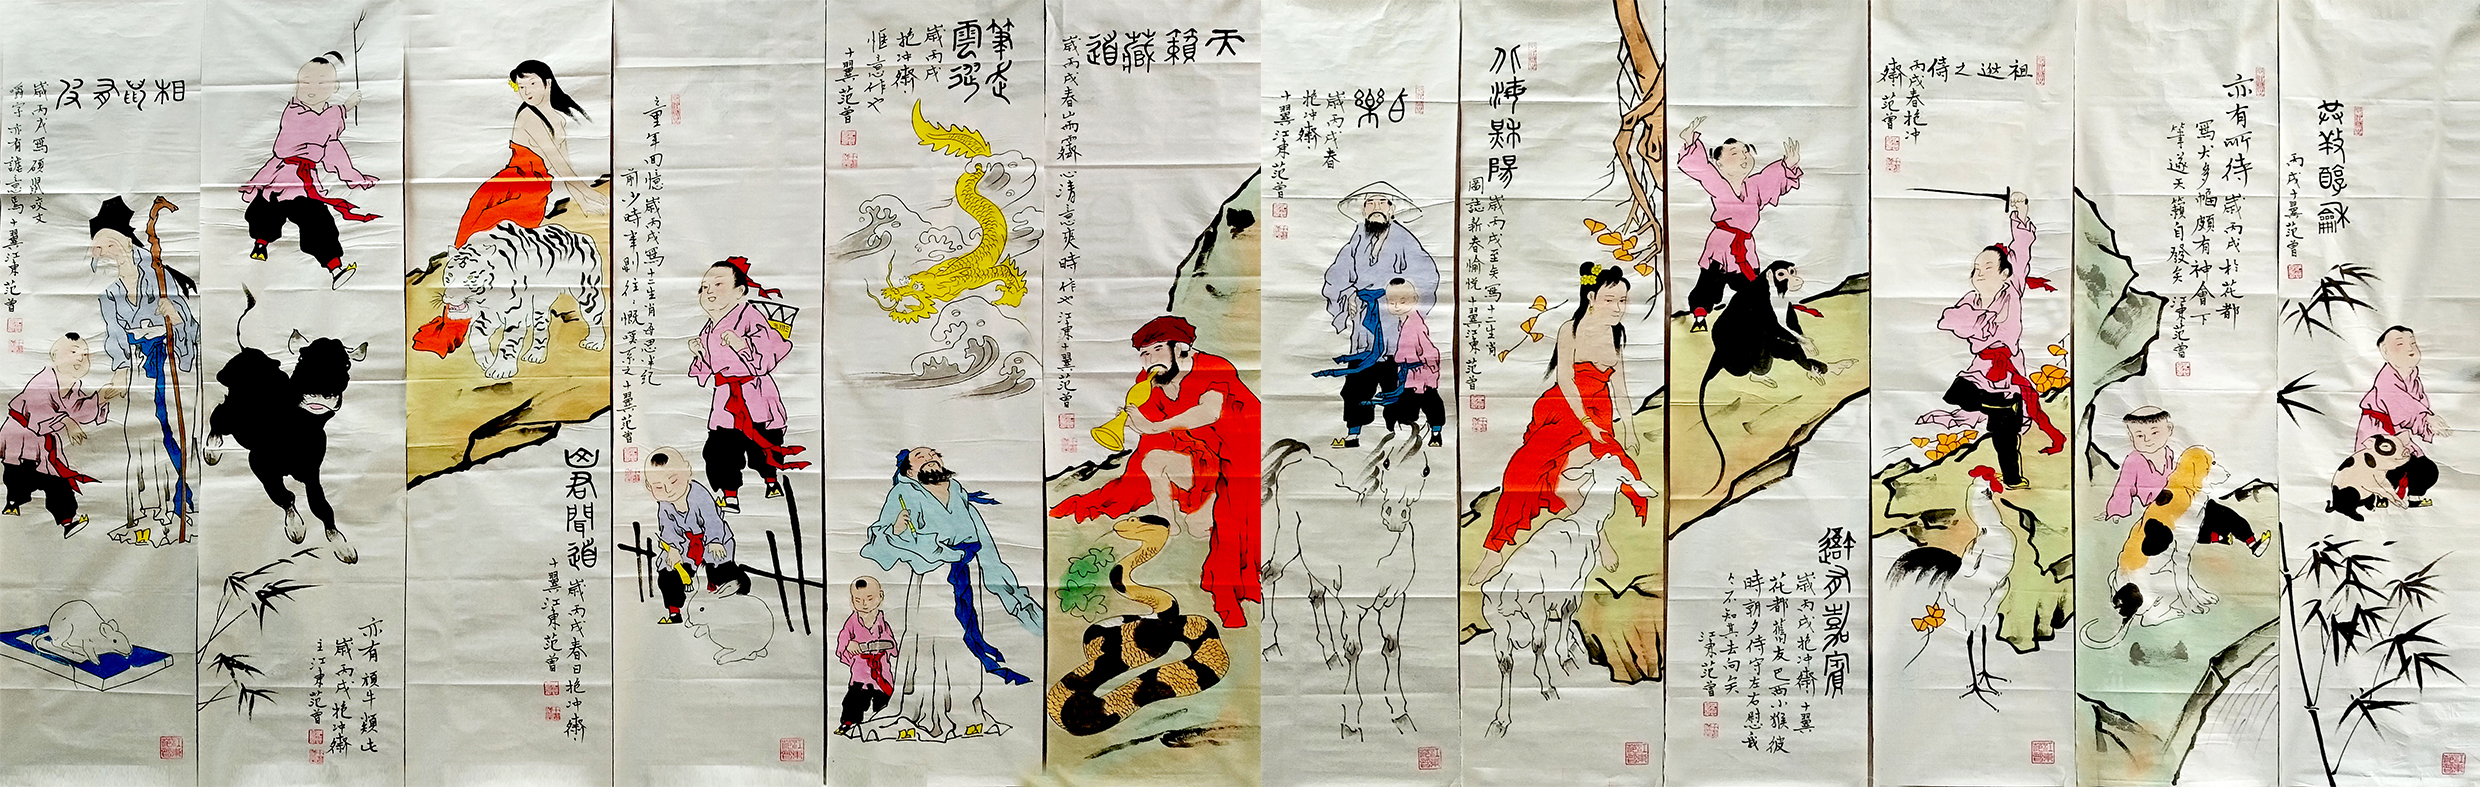 相鼠有皮
歲丙戌寫碩鼠咬文
嚼字亦有諧意焉十翼江東范曾
亦有頑牛類此
歲丙戌抱冲齋
主江東范曾
山君聞道
歲丙戌春日抱冲齋
十翼江東范曾
童年回憶歲丙戌寫十二生肖
前少時
十翼范曾
筆走
雲
歲丙戌
抱冲齋
惬意作也
十翼范曾
天籟藏道
歲丙戌春山雨霽心清意爽時作也江東十翼范曾
白樂
歲丙戌春
抱冲齋
十翼江東范曾
歲丙戌至矣寫十二生肖
圖誌新春愉悦十翼江東范曾
有嘉賓
歲丙戌抱冲齋十翼
花都舊友巴西小猴彼
時朝夕侍守左右慰我
今不知其去向矣
江東范曾
祖逖之侍
丙戌春抱冲
齋范曾
亦有所待歲丙戌於花都
寫犬多幅頗有神會下
筆遂天籟自發矣江東范曾
丙戌十翼范曾